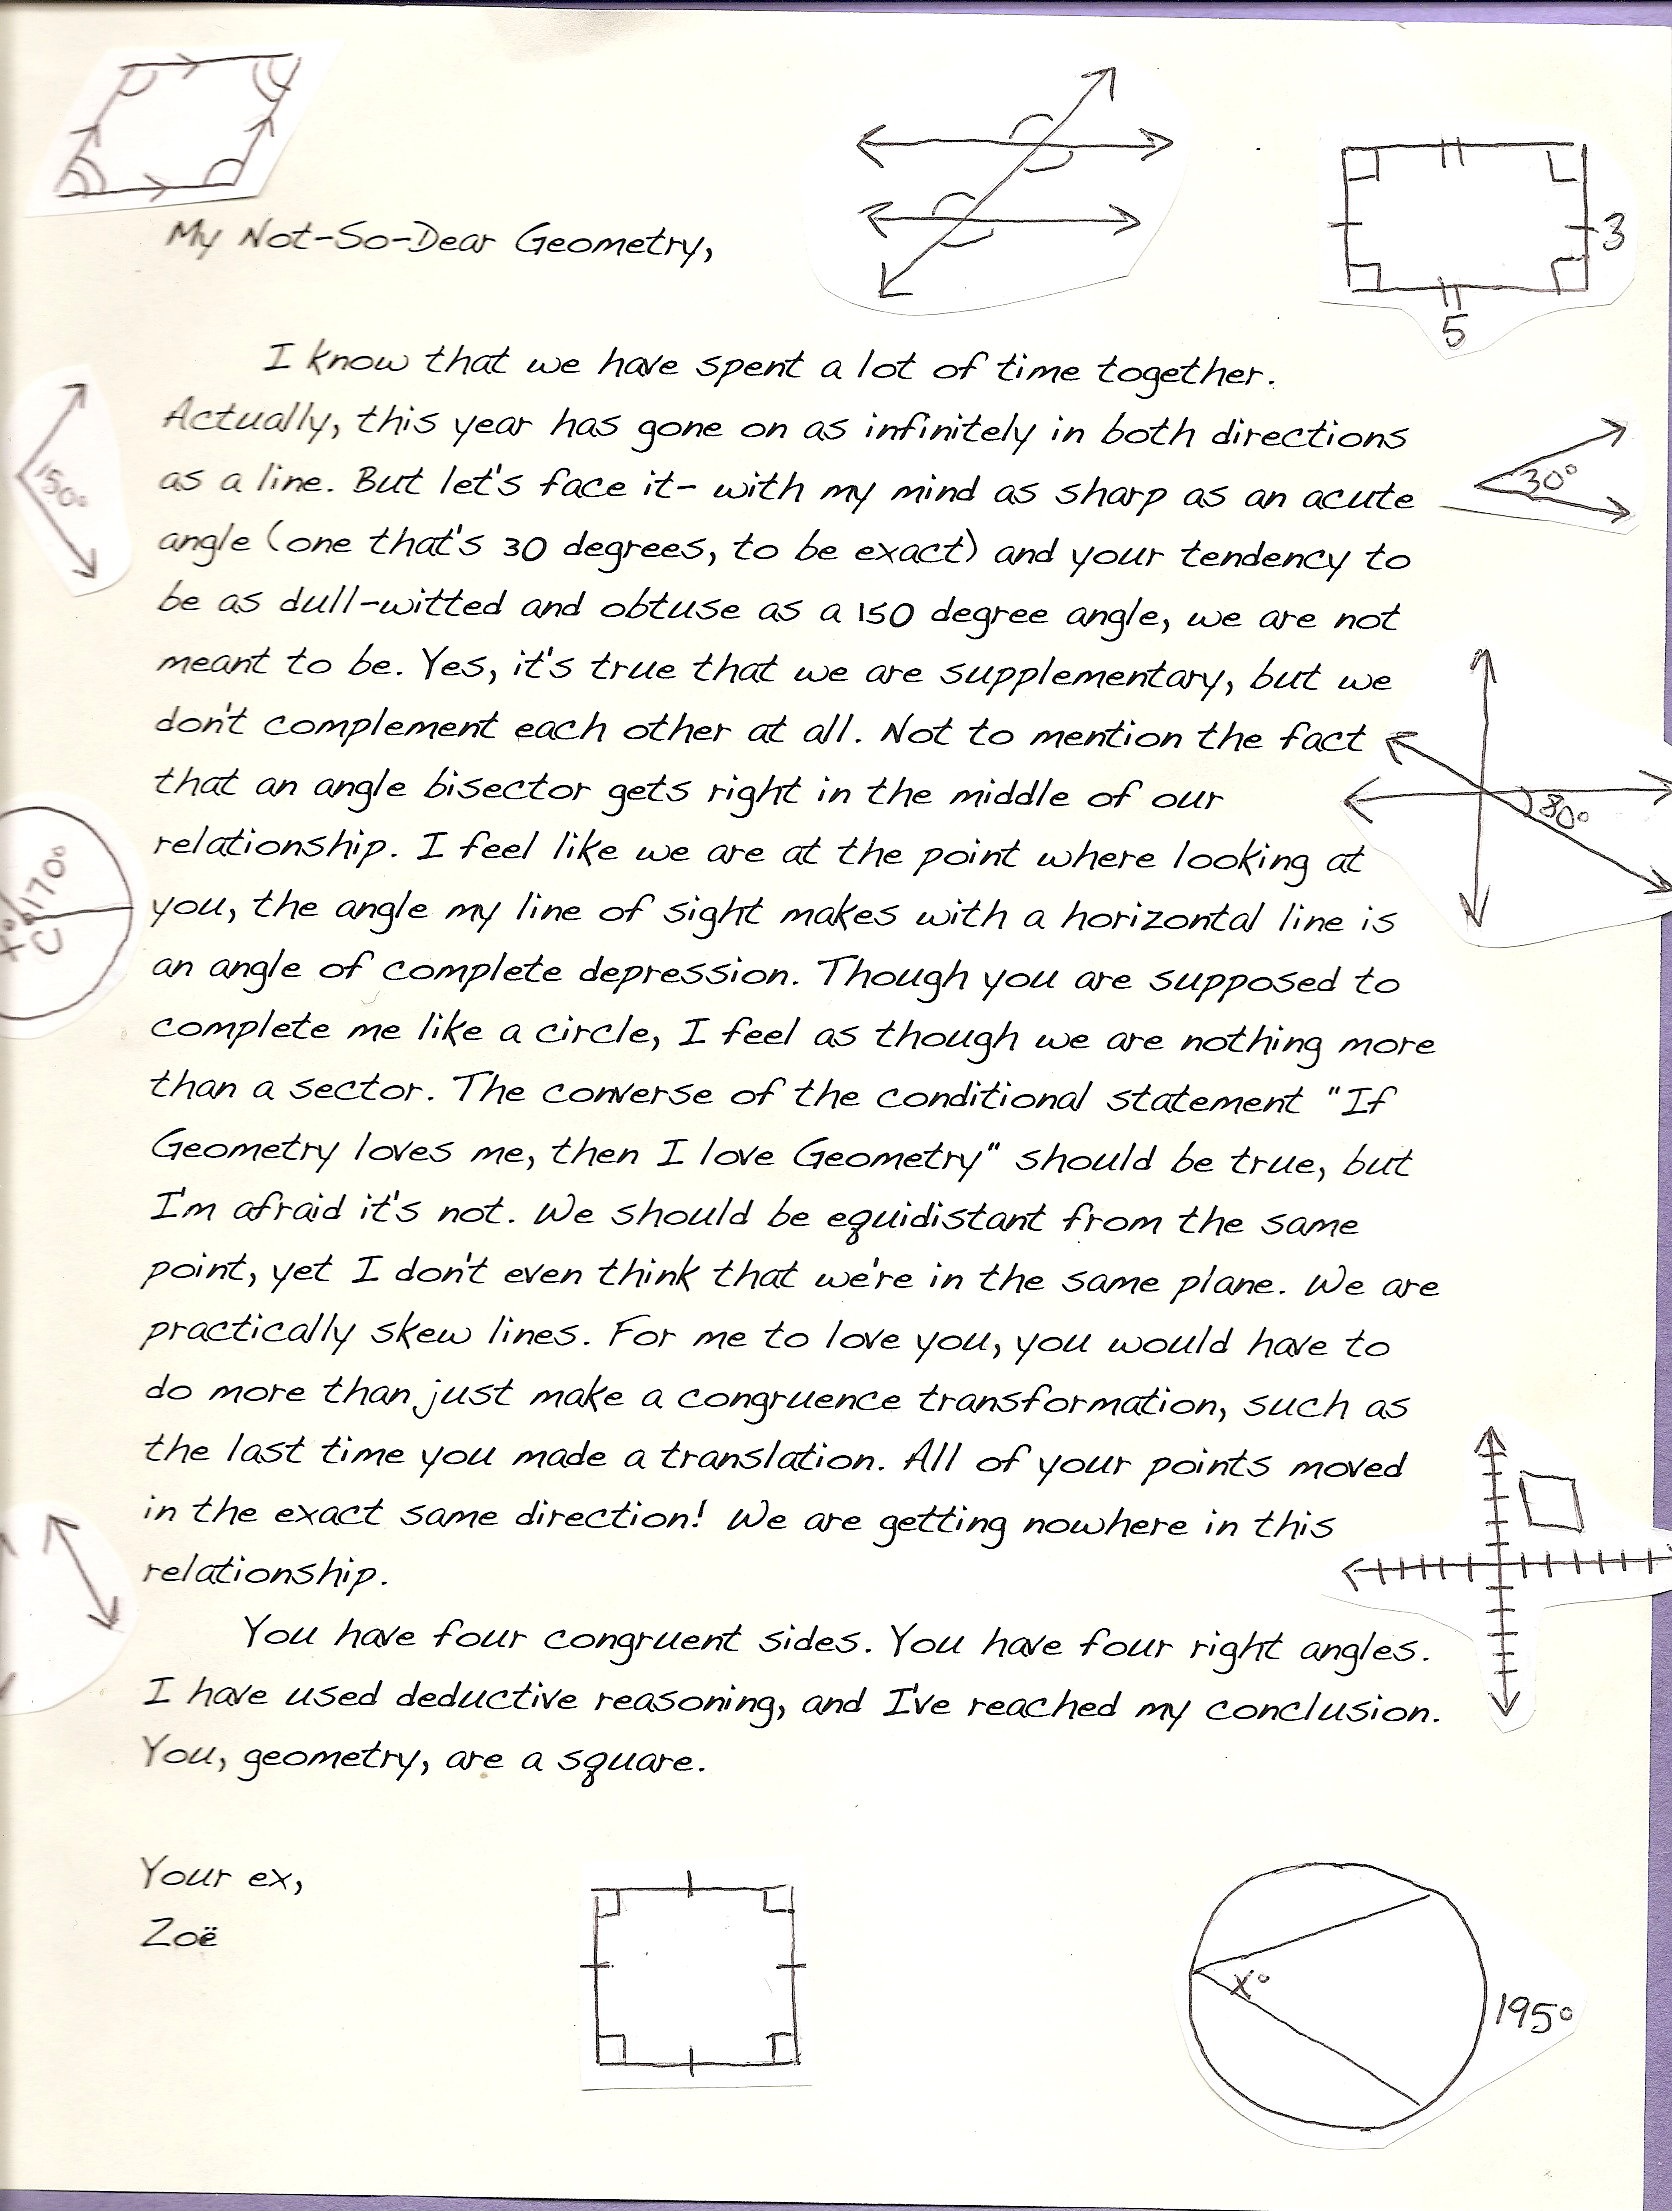 My Not-So-Dear Geometry,
3
5
I know that we have spent a lot of time together.
Actually, this year has gone on as infinitely in both directions
as a line. But let's face it- with my mind as sharp as an acute
30°
150°
angle (one that's 30 degrees, to be exact) and your tendency to
be as dull-witted and obtuse as a 150 degree angle, we are not
meant to be. Yes, it's true that we are supplementary, but we
don't complement each other at all. Not to mention the fact
that an angle bisector gets right in the middle of our
30°
relationship. I feel like we are at the point where looking at
170°
x°
C
you, the angle my line of sight makes with a horizontal line is
an angle of complete depression. Though you are supposed to
complete me like a circle, I feel as though we are nothing more
than a sector. The converse of the conditional statement "If
Geometry loves me, then I love Geometry" should be true, but
I'm afraid it's not. We should be equidistant from the same
point, yet I don't even think that we're in the same plane. We are
practically skew lines. For me to love you, you would have to
do more than just make a congruence transformation, such as
the last time you made a translation. All of your points moved
in the exact same direction! We are getting nowhere in this
relationship.
You have four congruent sides. You have four right angles.
I have used deductive reasoning, and I've reached my conclusion.
You, geometry, are a square.
Your ex,
Zoë
x°
195°